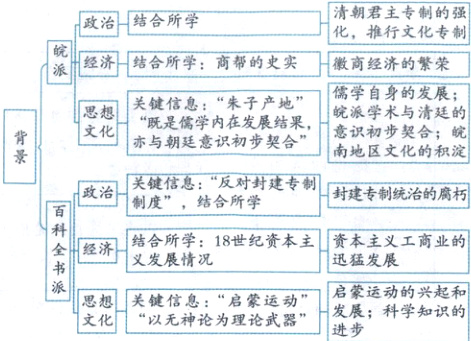 背景
皖派
政治
结合所学
清朝君主专制的强
化，推行文化专制
经济
结合所学：商帮的史实
徽商经济的繁荣
思想
文化
关键信息：“朱子产地”
“既是儒学内在发展结果，
亦与朝廷意识初步契合”
儒学自身的发展；
皖派学术与清廷的
意识初步契合；皖
南地区文化的积淀
百科全书派
政治
关键信息：“反对封建专制
制度”，结合所学
封建专制统治的腐朽
经济
结合所学：18世纪资本主
义发展情况
资本主义工商业的
迅猛发展
思想
文化
关键信息：“启蒙运动”
“以无神论为理论武器”
启蒙运动的兴起和
发展；科学知识的
进步